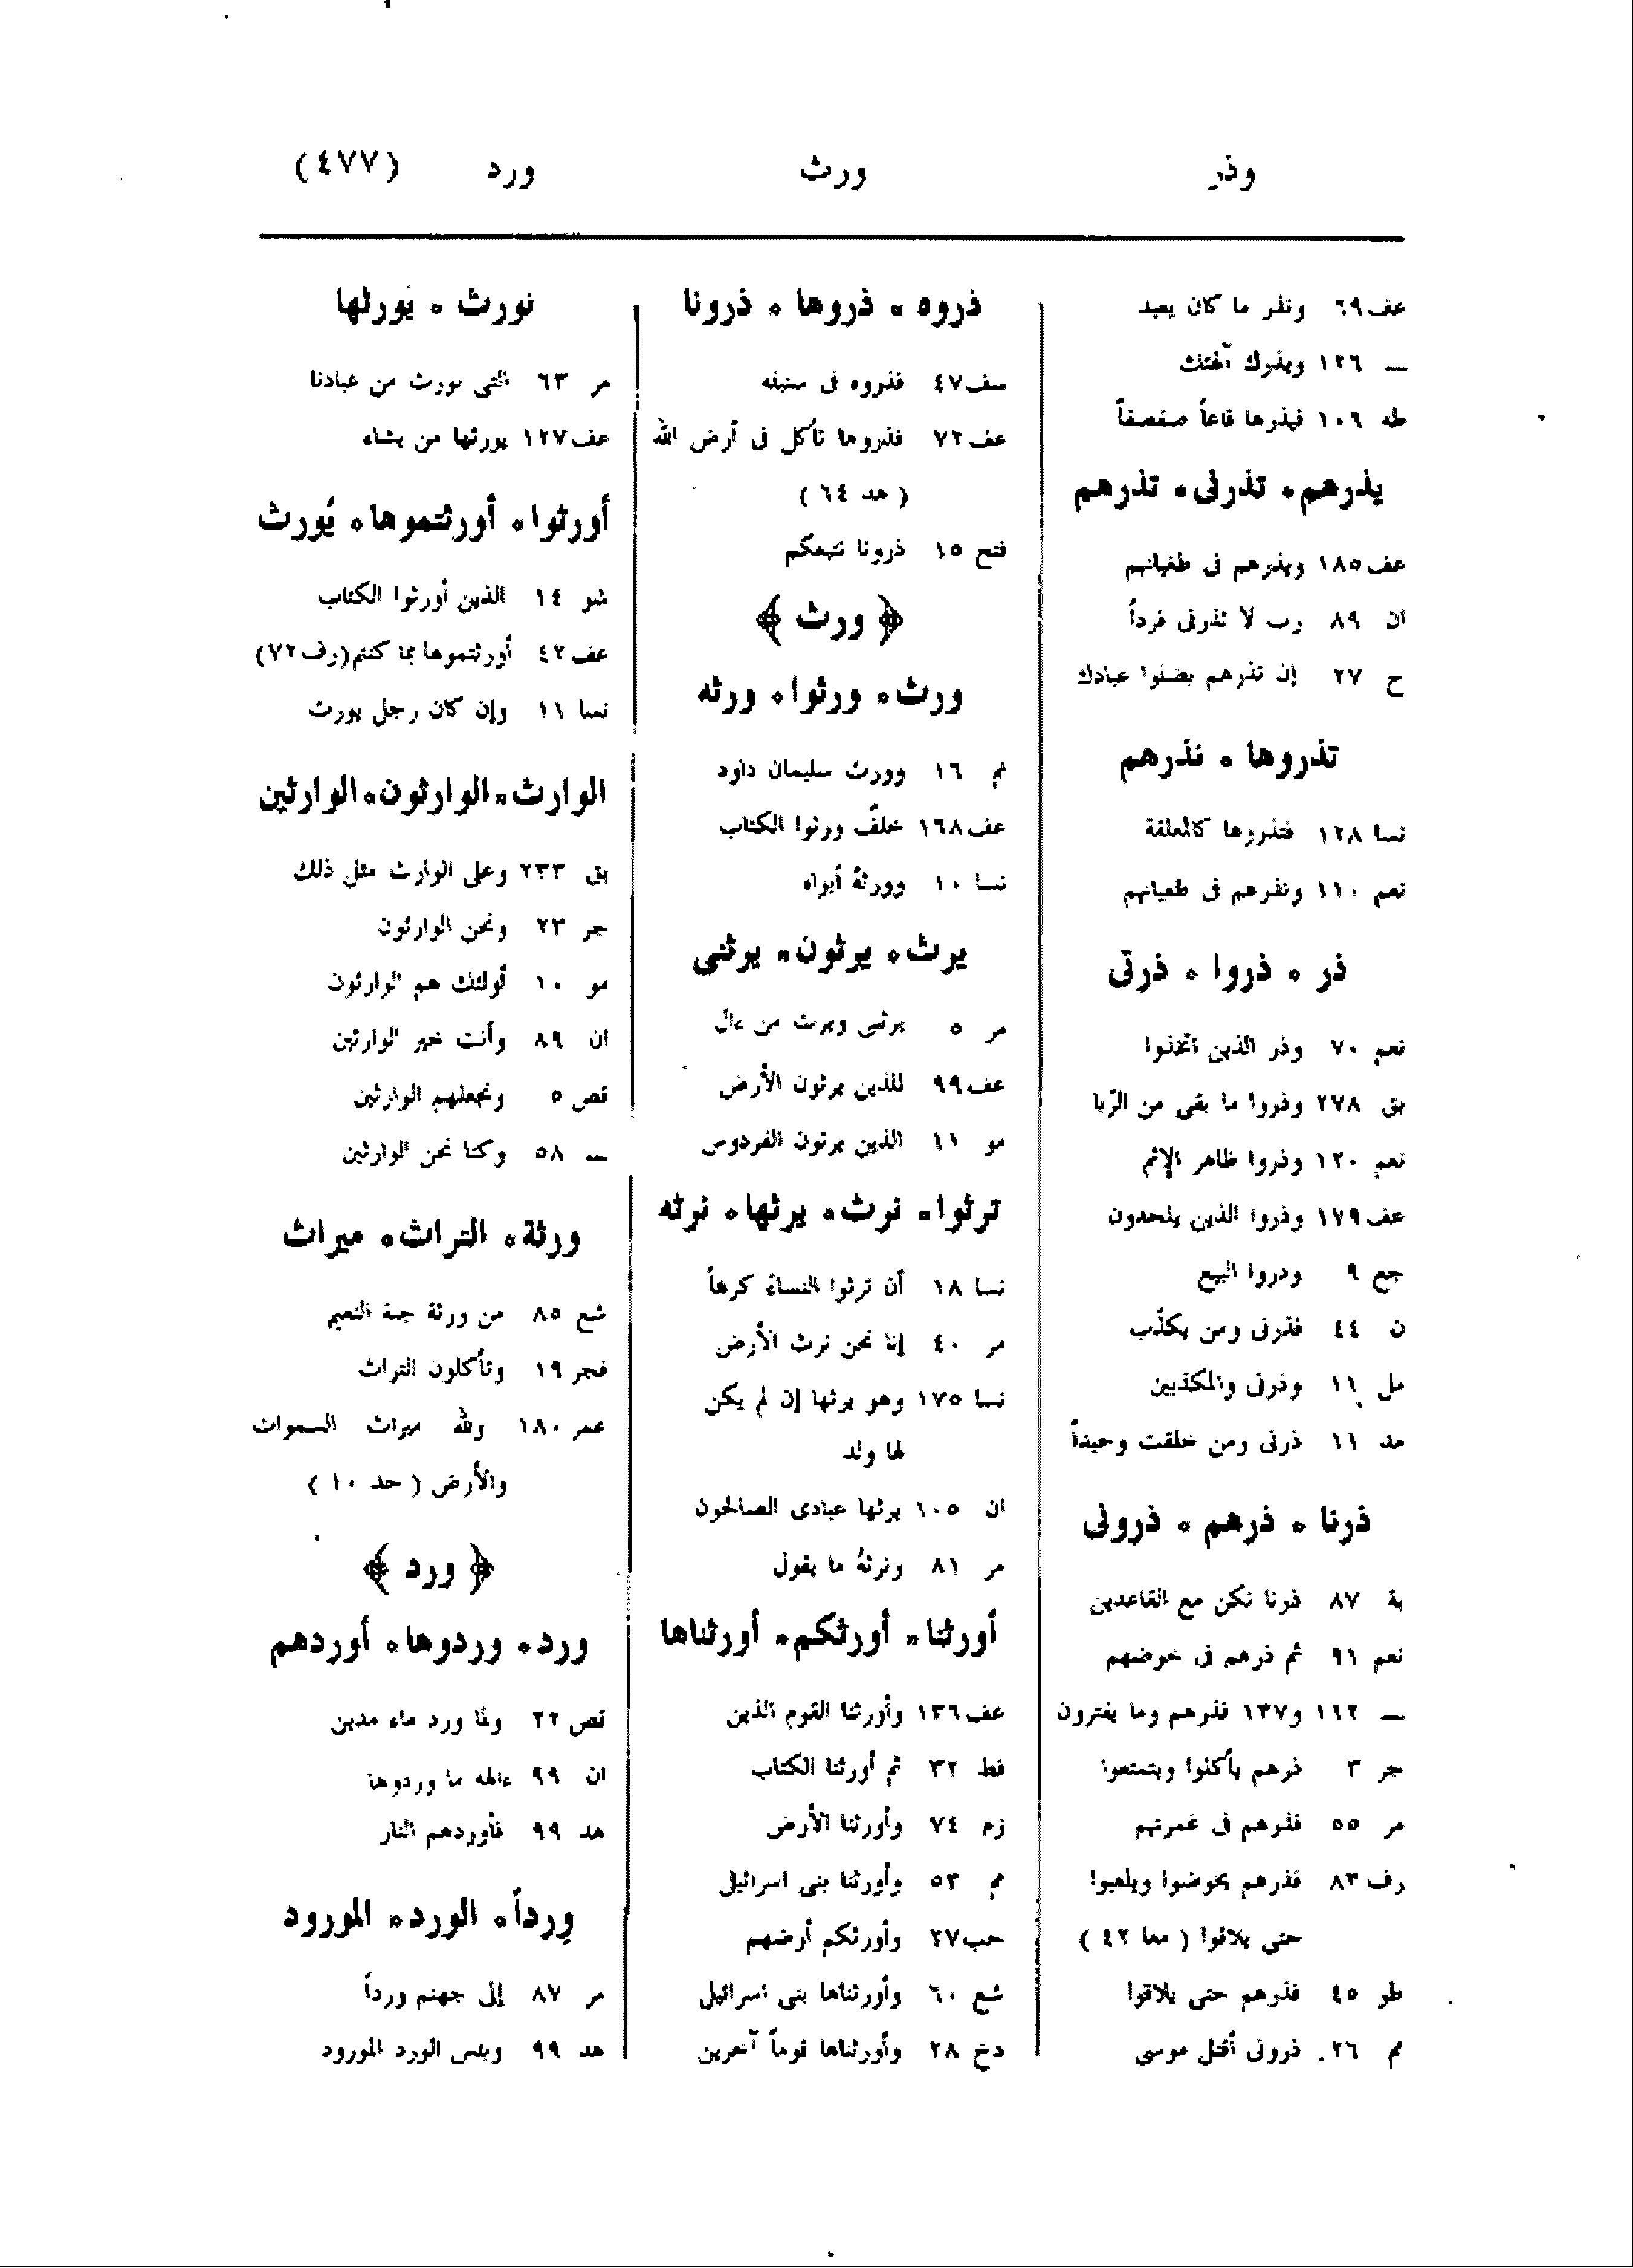 وذر ورث ورد (٤٧٧)
عف ٦٩ ونذر ما كان يعبد
— ١٢٦ ويذرك آلهتك
طه ١٠٦ فيذرها قاعاً صفصفاً
يذرهم ٠ تذرنى ٠ تذرهم
عف ١٨٥ ويذرهم فى طغيانهم
ان ٨٩ رب لا تذرنى فرداً
ح ٢٧ إن تذرهم يضلوا عبادك
تذروها ٠ نذرهم
نسا ١٢٨ فتذروها كالمعلقة
نعم ١١٠ ونذرهم فى طغيانهم
ذر ٠ ذروا ٠ ذرنى
نعم ٧٠ وذر الذين اتخذوا
بق ٢٧٨ وذروا ما بقى من الرّبا
نعم ١٢٠ وذروا ظاهر الإثم
عف ١٧٩ وذروا الذين يلحدون
جع ٩ وذروا البيع
ن ٤٤ فذرنى ومن يكذّب
مل ١١ وذرنى والمكذبين
مد ١١ ذرنى ومن خلقت وحيداً
ذرنا ٠ ذرهم ٠ ذرونى
بة ٨٧ ذرنا نكن مع القاعدين
نعم ٩١ ثم ذرهم فى خوضهم
— ١١٢ و١٣٧ فذرهم وما يفترون
جر ٣ ذرهم يأكلوا ويتمتعوا
مر ٥٥ فذرهم فى غمرتهم
رف ٨٣ فذرهم يخوضوا ويلعبوا
حتى يلاقوا ( معا ٤٢ )
طو ٤٥ فذرهم حتى يلاقوا
مم ٢٦ ذرونى أقتل موسى
ذروه ٠ ذروها ٠ ذرونا
سف ٤٧ فذروه فى سنبله
عف ٧٢ فذروها تأكل فى أرض الله
( هد ٦٤ )
فتح ١٥ ذرونا نتبعكم
﴿ ورث ﴾
ورث ٠ ورثوا ٠ ورثه
نم ١٦ وورث سليمان داود
عف ١٦٨ خلفٌ ورثوا الكتاب
نسا ١٠ وورثهُ أبواه
يرث ٠ يرثون ٠ يرثنى
مر ٥ يرثنى ويرث من ءال
عف ٩٩ للذين يرثون الأرض
مو ١١ الذين يرثون الفردوس
ترثوا ٠ نرث ٠ يرثها ٠ نرثه
نسا ١٨ أن ترثوا النساءَ كرهاً
مر ٤٠ إنا نحن نرث الأرض
نسا ١٧٥ وهو يرثها إن لم يكن
لها ولد
ان ١٠٥ يرثها عبادى الصالحون
مر ٨١ ونرثهُ ما يقول
أورثنا ٠ أورثكم ٠ أورثناها
عف ١٣٦ وأورثنا القوم الذين
فط ٣٢ ثم أورثنا الكتاب
زم ٧٤ وأورثنا الأرض
مم ٥٣ وأورثنا بنى اسرائيل
حب ٢٧ وأورثكم أرضهم
شع ٦٠ وأورثناها بنى اسرائيل
دخ ٢٨ وأورثناها قوماً آخرين
نورث ٠ يورثها
مر ٦٣ التى نورث من عبادنا
عف ١٢٧ يورثها من يشاء
أورثوا ٠ أورثتموها ٠ يُورث
شو ١٤ الذين أورثوا الكتاب
عف ٤٢ أورثتموها بما كنتم (رف ٧٢)
نسا ١١ وإن كان رجل يورث
الوارث ٠ الوارثون ٠ الوارثين
بق ٢٣٣ وعلى الوارث مثل ذلك
جر ٢٣ ونحن الوارثون
مو ١٠ أولئك هم الوارثون
ان ٨٩ وأنت خير الوارثين
قص ٥ ونجعلهم الوارثين
— ٥٨ وكنا نحن الوارثين
ورثة ٠ التراث ٠ ميراث
شع ٨٥ من ورثة جنة النعيم
فجر ١٩ وتأكلون التراث
عمر ١٨٠ ولله ميراث السموات
والأرض ( حد ١٠ )
﴿ ورد ﴾
ورد ٠ وردوها ٠ أوردهم
قص ٢٢ ولما ورد ماء مدين
ان ٩٩ ءالهه ما وردوها
هد ٩٩ فأوردهم النار
وِرداً ٠ الورد ٠ المورود
مر ٨٧ إلى جهنم ورداً
هد ٩٩ وبئس الورد المورود